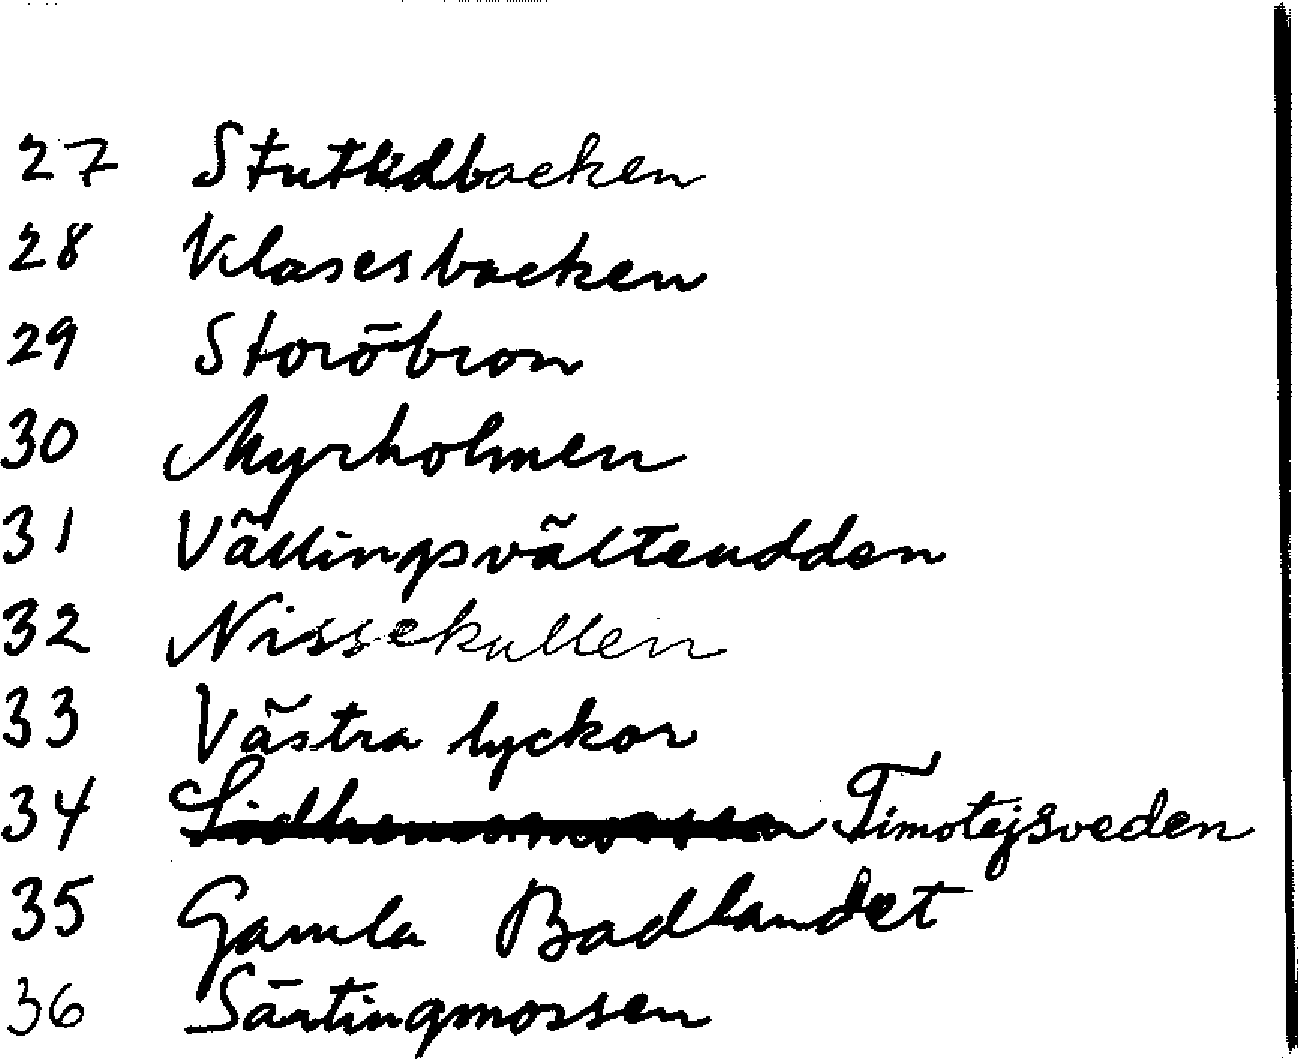 27 Stutlidbacken
28 Klasesbacken
29 Storöbron
30 Myrholmen
31 Vällingsvälteudden
32 Nissekullen
33 Västra lyckor
34 Timotejsveden
35 Gamla Badlandet
36 Särtingmossen